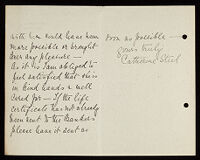 with her would have been
more possible or brought
her any pleasure —
As it is I am obliged to
feel satisfied that she is
in kind hands & well
cared for — If the life
certificate has not already
been sent to the Bankers
please have it sent as
soon as possible —
Yours truly
Catherine Steel